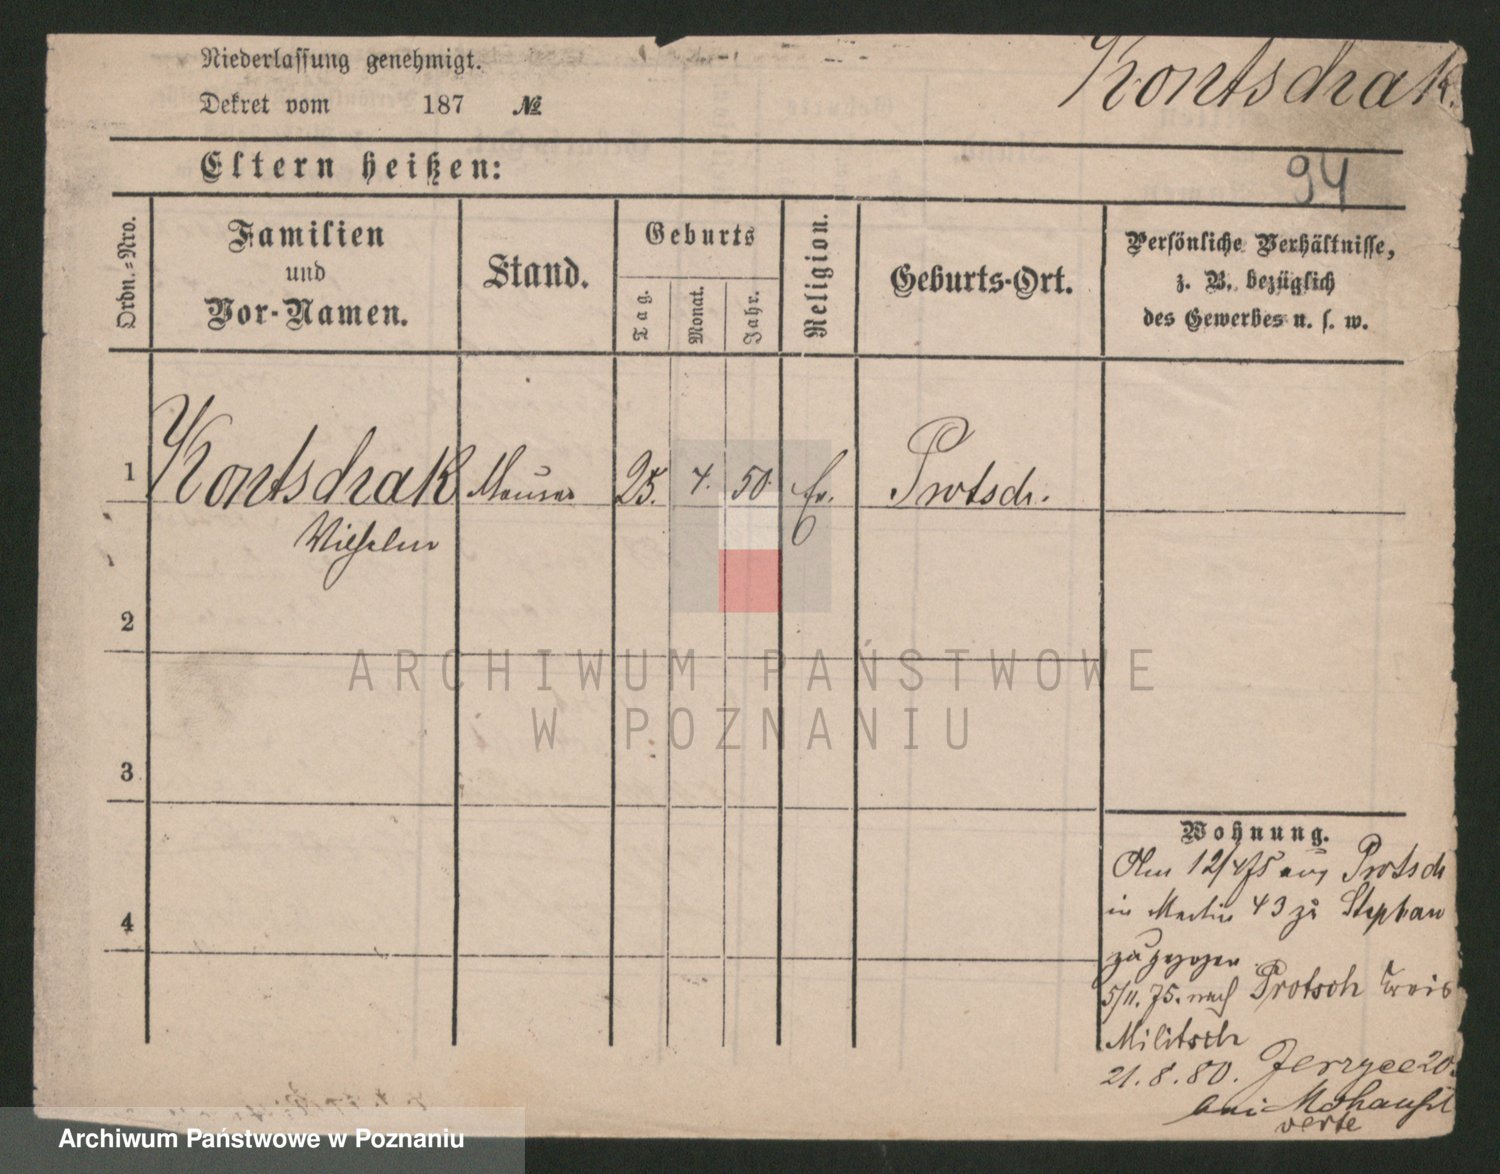 Niederlassung genehmigt.
Dekret vom 187 №
Kontschak.
94
Eltern heißen:
Ordn.-Nro.
Familien
und
Vor-Namen.
Stand.
Geburts
Tag.
Monat.
Jahr.
Religion.
Geburts-Ort.
Persönliche Verhältnisse,
z. B. bezüglich
des Gewerbes u. s. w.
1 Kontschak Maurer 25. 4. 50. Ev. Protsch.
Wilhelm
2
3
4
Wohnung.
Am 12/4 75 aus Protsch
in Martin 43 zu Stephan
zugezogen
5/11. 75. nach Protsch Kreis
Militsch
21. 8. 80. 20.
bei
ARCHIWUM PAŃSTWOWE
W POZNANIU
Archiwum Państwowe w Poznaniu